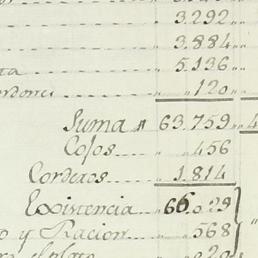 3.292
3.884
ta 5.136
120
Suma 63.759
Cojos 456
Corderos 1.814
Existencia 66.029
o y Racion 568
el plato 20